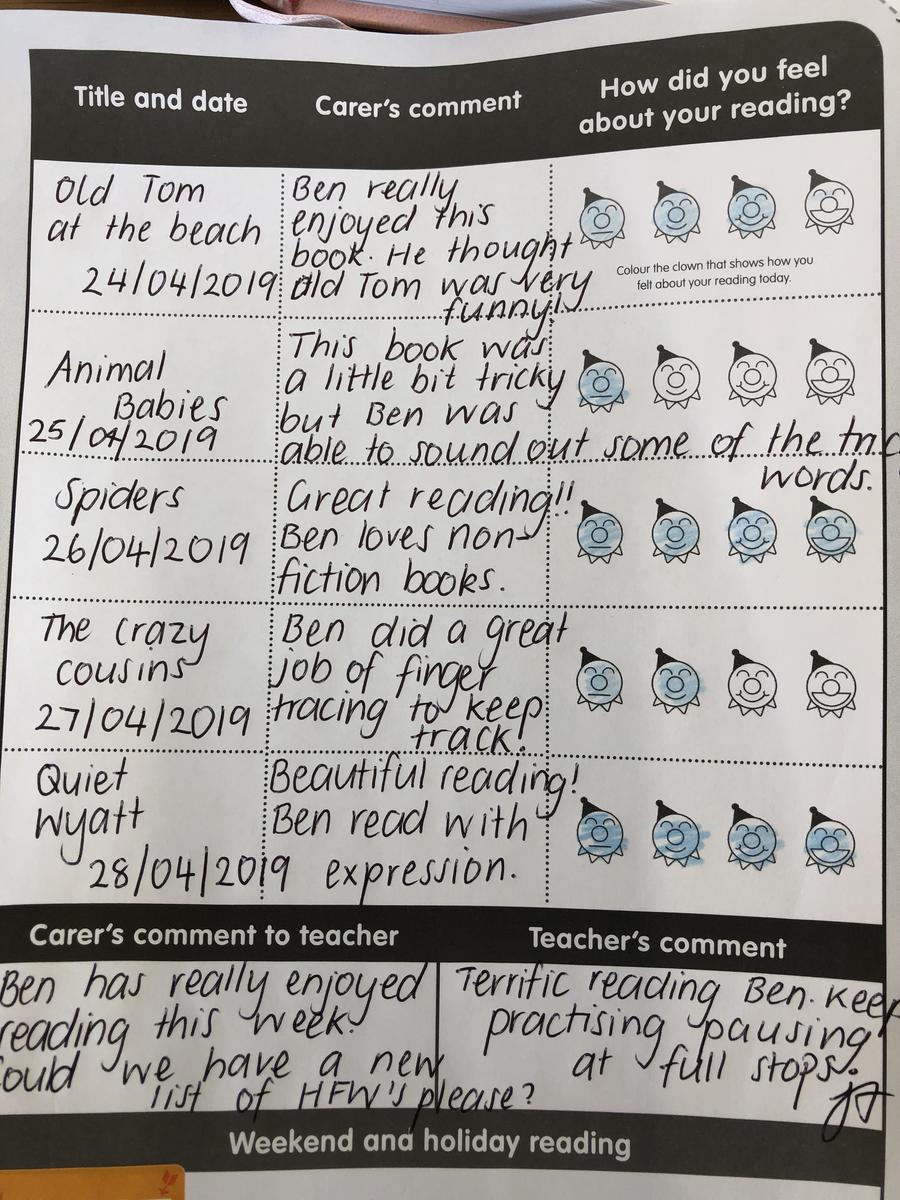 Title and date
Carer's comment
How did you feel
about your reading?
Old Tom
at the beach
24/04/2019
Ben really
enjoyed this
book. He thought
old Tom was very
funny!
Colour the clown that shows how you
felt about your reading today.
Animal
Babies
25/04/2019
This book was
a little bit tricky
but Ben was
able to sound out some of the
words.
Spiders
26/04/2019
Great reading!!
Ben loves non-
fiction books.
The crazy
cousins
27/04/2019
Ben did a great
job of finger
tracing to keep
track!
Quiet
Wyatt
28/04/2019
Beautiful reading!
Ben read with
expression.
Carer's comment to teacher
Ben has really enjoyed
reading this week.
ould we have a new
list of HFW's please?
Teacher's comment
Terrific reading Ben. Keep
practising pausing
at full stops.
Weekend and holiday reading